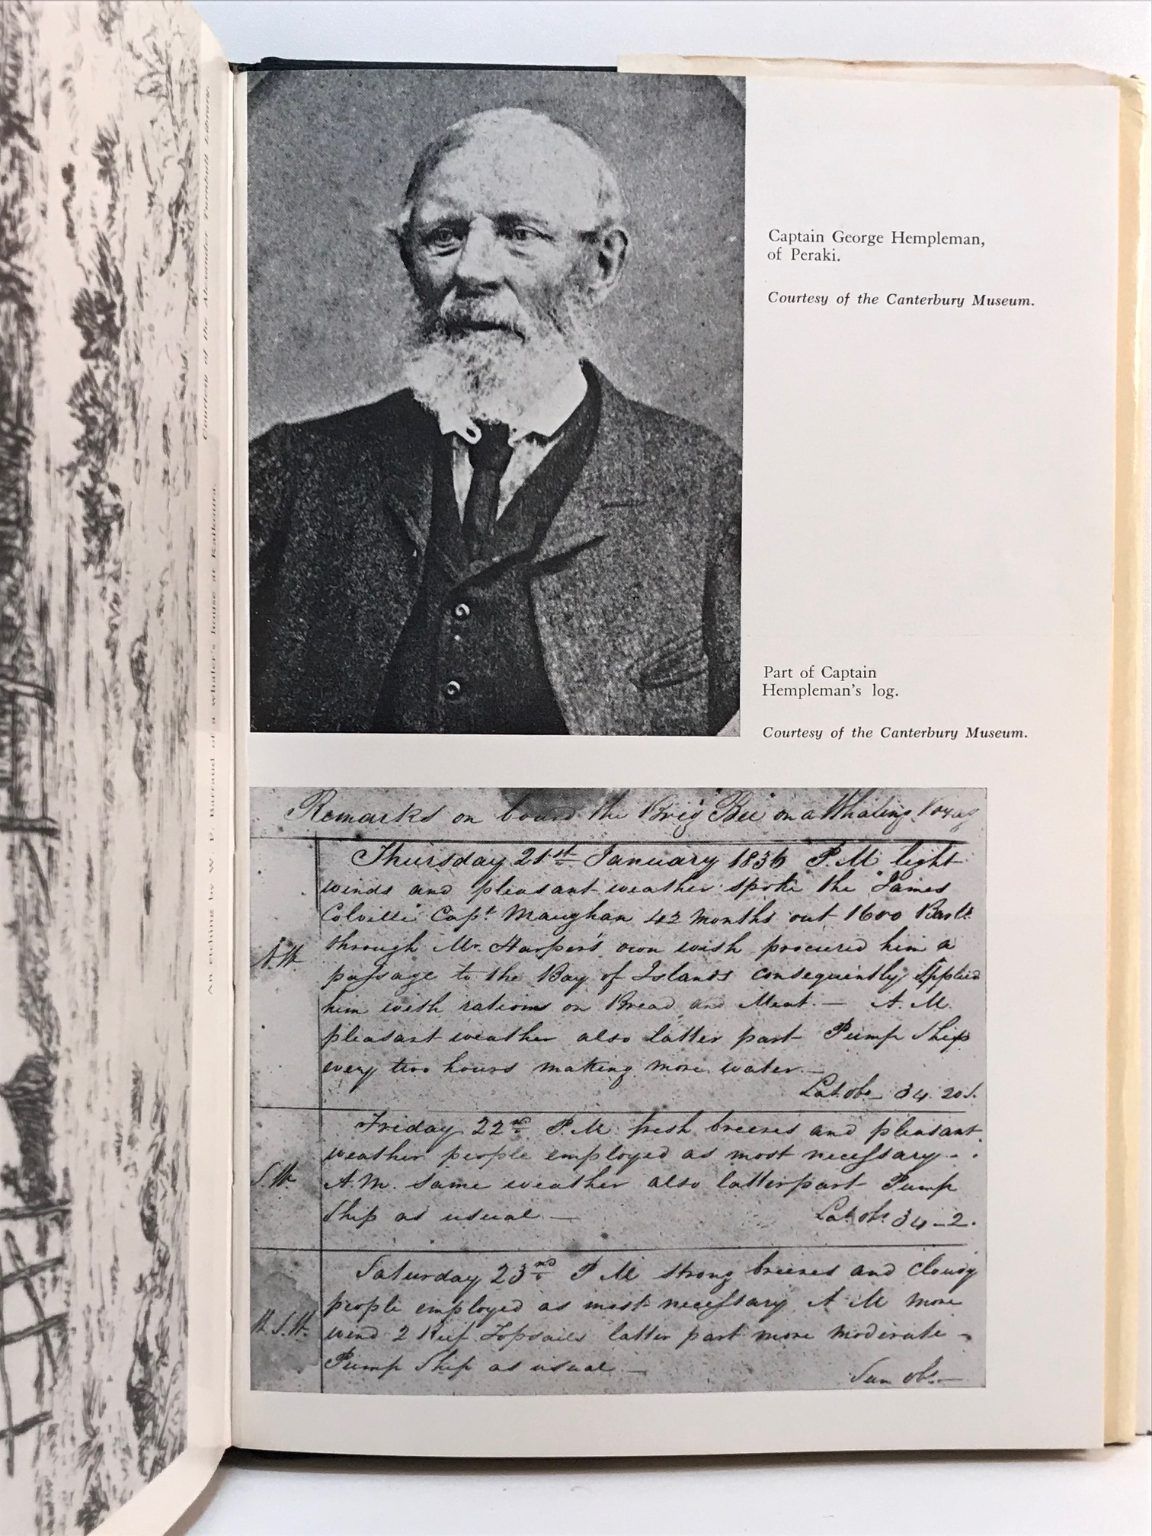 Captain George Hempleman,
of Peraki.
Courtesy of the Canterbury Museum.
Part of Captain
Hempleman's log.
Courtesy of the Canterbury Museum.
Remarks on board the Brig "Bee" on a Whaling Voyag
Thursday 21st January 1836 P.M light
winds and pleasant weather spoke the "James
Colville" Capt Maughan 42 Months out 1600 Barls
through Mr. Harper's own wish procured him a
passage to the Bay of Islands consequently Spplied
him with rations on Bread and Meat. — A.M.
pleasant weather also latter part Pump Ship
every two hours making more water. —
Lat. obs 34. 20 S.
Friday 22nd P.M. fresh breezes and pleasant
weather people employed as most necessary -
S.W. A.M. same weather also latter part Pump
Ship as usual —
Lat. obs 34 - 2.
Saturday 23rd P M strong breezes and cloudy
people employed as most necessary A M more
W.S.W. wind 2 Reef Topsails latter part more moderate -
Pump Ship as usual —
Sun obs —
An etching by W. F. Barraud of a whaler's house at Kaikoura.
Courtesy of the Alexander Turnbull Library.